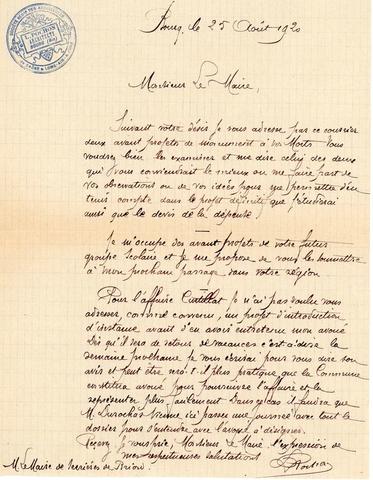 Bourg, le 25 Août 1920
Monsieur Le Maire,
Suivant votre désir je vous adresse par ce courrier
deux avant projets de monument à vos Morts. Vous
voudrez bien les examiner et me dire celui des deux
qui vous conviendrait le mieux ou me faire part de
vos observations ou de vos idées pour me permettre d'en
tenir compte dans le projet définitif que j'étudierai
ainsi que le devis de la dépense.
Je m'occupe des avant projets de votre futur
groupe scolaire et je me propose de vous le soumettre
à mon prochain passage dans votre région.
Pour l'affaire je n'ai pas voulu vous
adresser, comme convenu, un projet d'introduction
d'instance avant d'en avoir entretenu mon avoué
Dès qu'il sera de retour de vacances c'est à dire la
semaine prochaine je vous écrirai pour vous dire son
avis et peut être sera-t-il plus pratique que la Commune
constitue avoué pour poursuivre l'affaire et la
représenter plus facilement. Dans ce cas il faudra que
M. vienne ici passer une journée avec tout le
dossier pour s'entendre avec l'avoué à désigner.
Veuillez je vous prie, Monsieur le Maire, l'expression de
mes respectueuses salutations
M. Le Maire de Serrières de Briord.